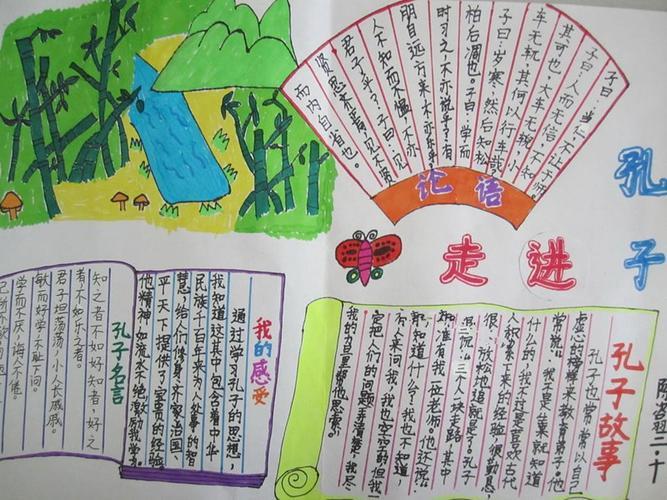 子曰：当仁，不让于师。
子曰：人而无信，不知
其可也。大车无輗，小
车无軏，其何以行车哉？
子曰：岁寒，然后知松
柏后凋也。子曰：学而
时习之，不亦说乎？有
朋自远方来，不亦乐乎？
人不知而不愠，不亦
君子乎？子曰：见不贤
贤思齐焉，见不贤
而内自省也。
论语
孔子
走进
孔子故事
孔子也常常以自己
虚心的榜样来教育弟子。他
常说：我不是生来就知道
什么的，我不过是喜欢古代
人积累下来的经验，很勤恳
很 放松地追就是了。孔子
很 三个人一块走路，其中
准有我一位老师。他还说：
知道什么？我也不知道，
有人来问我，我也空空的，但我
把人们的问题弄清楚，我尽
我的力量帮他思索。
我的感受
通过学习孔子的思想，
我知道这其中包含着中华
民族千百年来为人处事的智
慧，给人们修身齐家治国
平天下提供了宝贵的经验
他精神，如流水不绝，激励我学
孔子名言
知之者不如好知者，好之
者不如乐之者。
君子坦荡荡，小人长戚戚。
敏而好学，不耻下问。
学而不厌，诲人不倦。
己所不欲
二·十